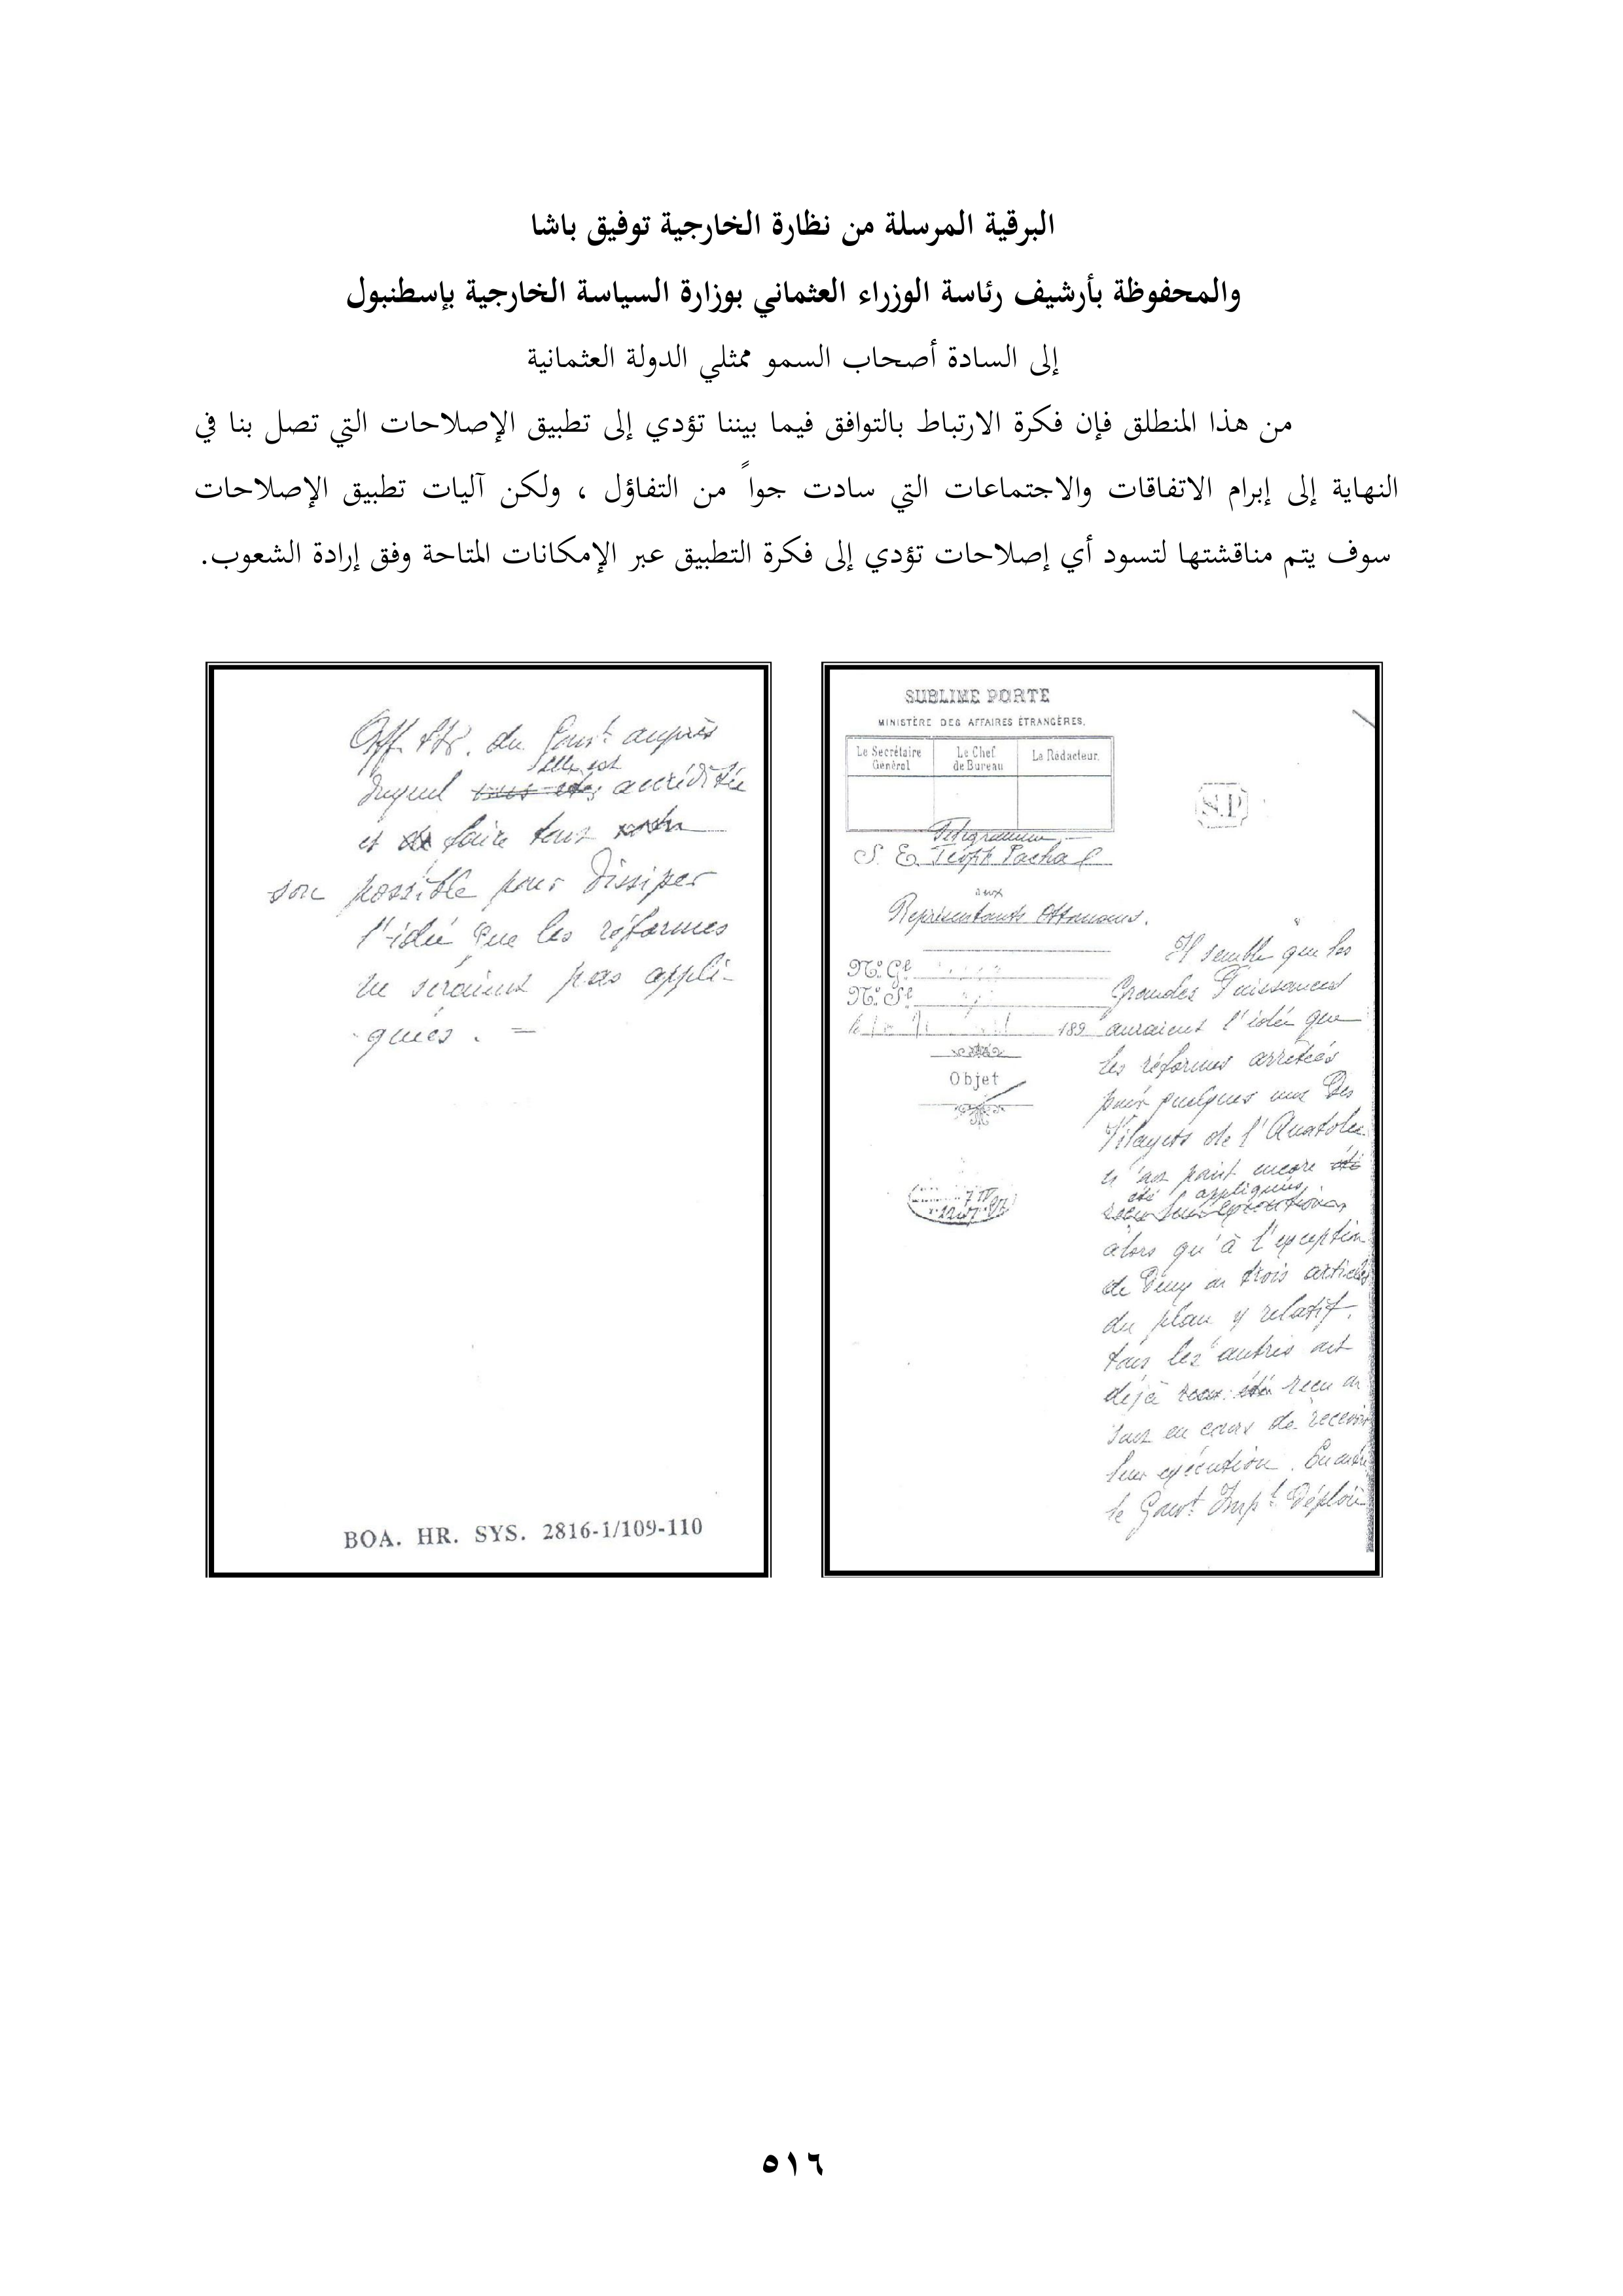 البرقية المرسلة من نظارة الخارجية توفيق باشا
والمحفوظة بأرشيف رئاسة الوزراء العثماني بوزارة السياسة الخارجية بإسطنبول
إلى السادة أصحاب السمو ممثلي الدولة العثمانية
من هذا المنطلق فإن فكرة الارتباط بالتوافق فيما بيننا تؤدي إلى تطبيق الإصلاحات التي تصل بنا في
النهاية إلى إبرام الاتفاقات والاجتماعات التي سادت جواً من التفاؤل ، ولكن آليات تطبيق الإصلاحات
سوف يتم مناقشتها لتسود أي إصلاحات تؤدي إلى فكرة التطبيق عبر الإمكانات المتاحة وفق إرادة الشعوب.
SUBLIME PORTE
MINISTÈRE DES AFFAIRES ÉTRANGÈRES.
Le Secrétaire Général
Le Chef de Bureau
Le Rédacteur.
S.P
Télégramme
S. E. Pacha
aux
Représentants Ottomans.
Nº Gl
Nº Sl
189
Objet
Il semble que les
Grandes Puissances
auraient l'idée que
les réformes arrêtées
pour quelques uns des
Vilayets de l'Anatolie
n'ont point encore
été appliquées
alors qu'à l'exception
de deux ou trois articles
du plan y relatif,
tous les autres ont
déjà reçu ou
sont en cours de recevoir
leur exécution.
le Gouvt Impl
du Gouvt auprès
duquel Elle est accréditée
et faire tout
son possible pour dissiper
l'idée que les réformes
ne seraient pas appli-
quées. =
BOA. HR. SYS. 2816-1/109-110
٥١٦